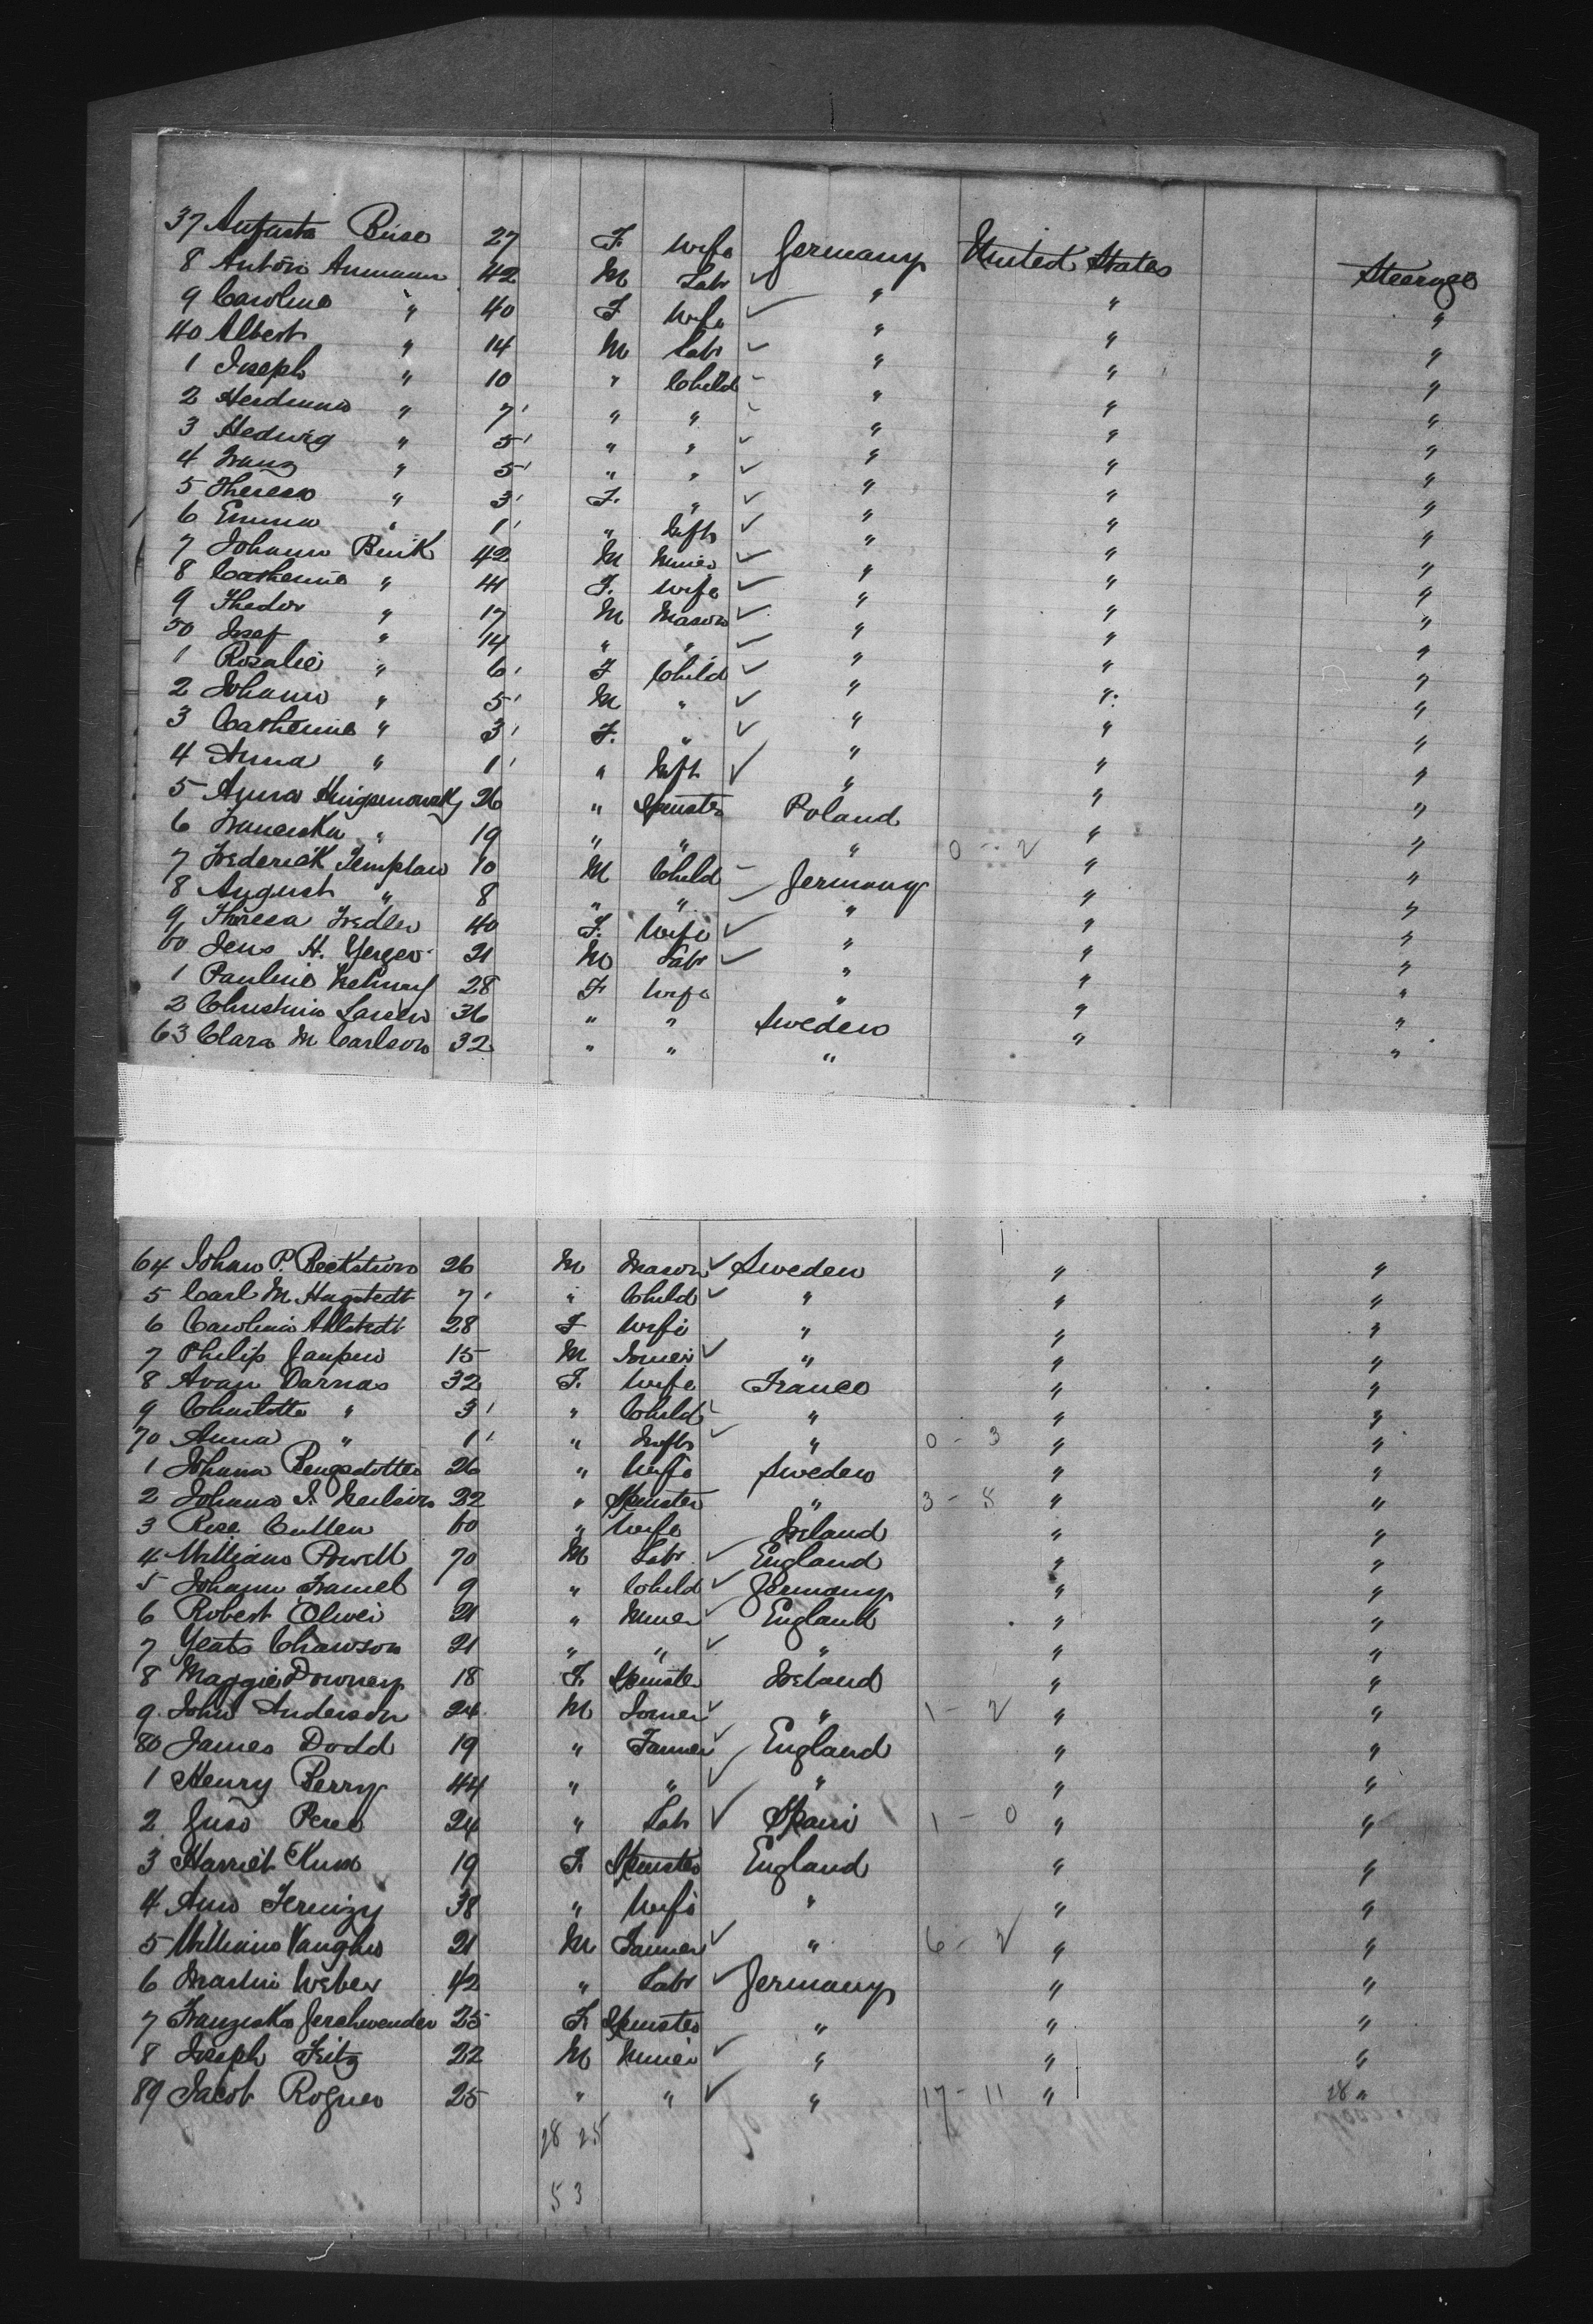 37 Augusta Buse 27 F. Wife Germany United States Steerage
8 Anton Aumann 42 M Labr " " "
9 Caroline " 40 F Wife " " "
40 Albert " 14 M Labr " " "
1 Joseph " 10 " Child " " "
2 " 7 " " " " "
3 Hedwig " 5 " " " " "
4 Franz " 5 " " " " "
5 Theresa " 3 F. " " " "
6 Emma " 1 " Inft " " "
7 Johann Buik 42 M Miner " " "
8 Catherine " 41 F. Wife " " "
9 Thedor " 17 M Mason " " "
50 Josef " 14 " " " " "
1 Rosalie " 6 F Child " " "
2 Johann " 5 M " " " "
3 Catherine " 3 F. " " " "
4 Anna " 1 " Inft " " "
5 Anna 26 " Spinster Poland " "
6 Franciska " 19 " " " 0 - 2 " "
7 Frederick Templaw 10 M Child Germany " "
8 August " 8 " " " " "
9 Theresa Fredler 40 F. Wife " " "
60 Jens H. Yerger 21 M Labr " " "
1 Pauline 28 F Wife " " "
2 Christina Larsen 36 " " Sweden " "
63 Clara M Carlson 32 " " " " "
64 Johan P. Beckstrom 26 M Mason Sweden " "
5 Carl M. Hagstedt 7 " Child " " "
6 Carolina Ahlstedt 28 F Wife " " "
7 Philip 15 M " " "
8 Avan Darnas 32 F. Wife France " "
9 Charlotte " 3 " Child " " "
70 Anna " 1 " Inft " 0 - 3 " "
1 Johana Bengsdotter 26 " Wife Sweden " "
2 Johana S. Neilsen 22 " Spinster " 3 - 5 " "
3 Rose Cullen 60 " Wife Ireland " "
4 William Powell 70 M Labr England " "
5 Johann 9 " Child Germany " "
6 Robert Oliver 21 " Miner England " "
7 Yeats Chawson 21 " " " " "
8 Maggie Downey 18 F. Spinster Ireland " "
9 John Anderson 24 M " 1 - 2 " "
80 James Dodd 19 " Farmer England " "
1 Henry Berry 44 " " " " "
2 Perez 24 " Labr Spain 1 - 0 " "
3 Harriet 19 F. Spinster England " "
4 Ann 38 " Wife " " "
5 William Vaughn 21 M Farmer " 6 - 2 " "
6 Martin Weber 42 " Labr Germany " "
7 Franziska Gerschwender 25 F. Spinster " " "
8 Joseph Fritz 22 M Miner " " "
89 Jacob Rogner 25 " " " 17 - 11 " 28 "
28 25
53